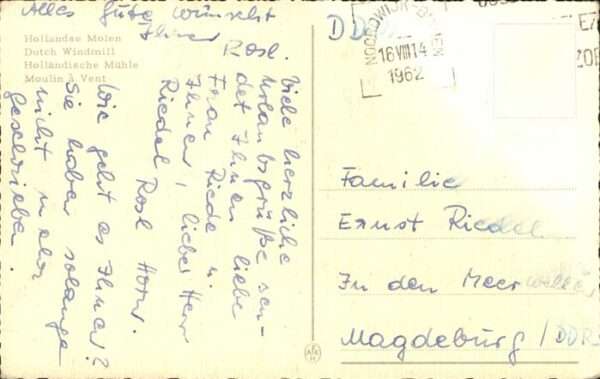 Alles Gute wünscht
Ihnen Rosl.
Hollandse Molen
Dutch Windmill
Holländische Mühle
Moulin à Vent
Viele herzliche
Urlaubsgrüße sen-
det Ihnen liebe
Frau Riedel u.
Ihnen, lieber Herr
Riedel Rosl Horn.
Wie geht es Ihnen?
Sie haben solange
nicht mehr
geschrieben.
DDR
16 VIII 14
1962
Familie
Ernst Riedel
In den Meerwellen
Magdeburg / DDR